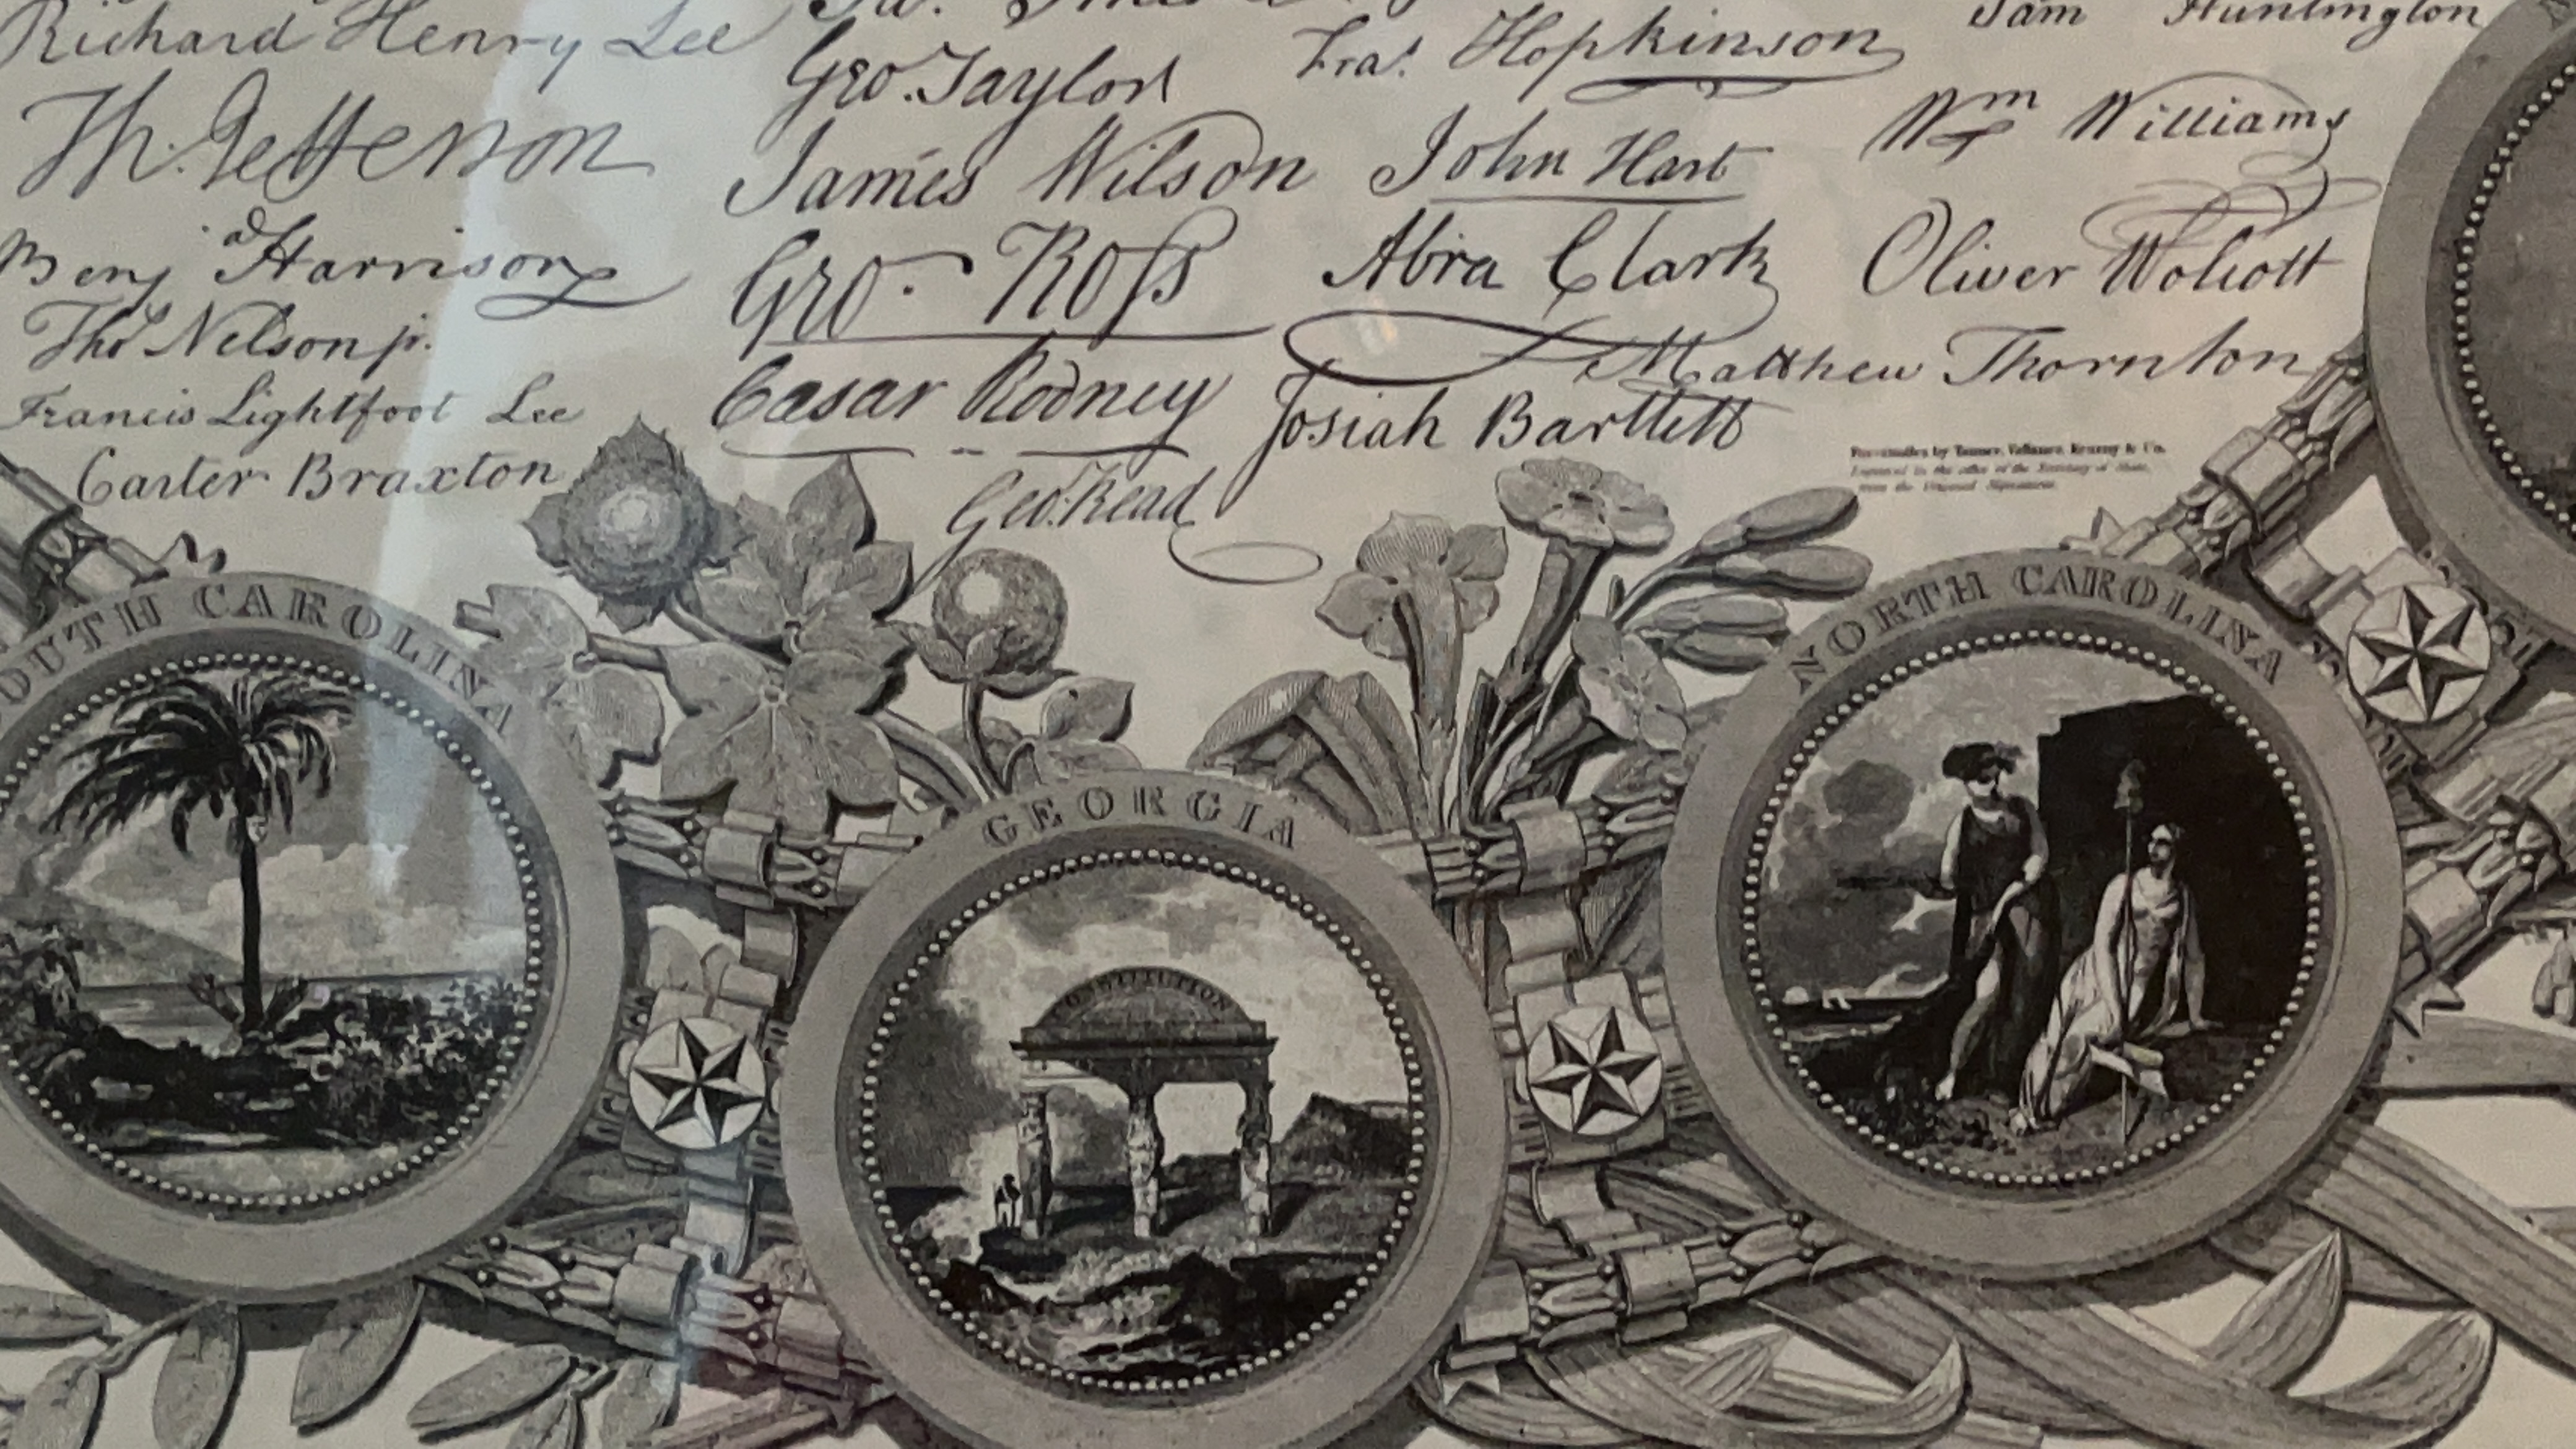 Richard Henry Lee
Th. Jefferson
Benj.ª Harrison
Thoˢ Nelson jr.
Francis Lightfoot Lee
Carter Braxton
Geo. Taylor
James Wilson
Geo. Ross
Caesar Rodney
Geo. Read
Fraˢ. Hopkinson
John Hart
Abra Clark
Josiah Bartlett
Sam Huntington
Wm Williams
Oliver Wolcott
Matthew Thornton
by Tanner, Vallance, Kearny & Co.
Engraved in the office of the Secretary of State,
from the Original Signatures
SOUTH CAROLINA
GEORGIA
CONSTITUTION
NORTH CAROLINA